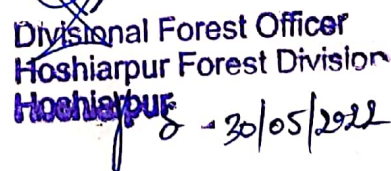 Divisional Forest Officer
Hoshiarpur Forest Division
Hoshiarpur
- 30/05/2022